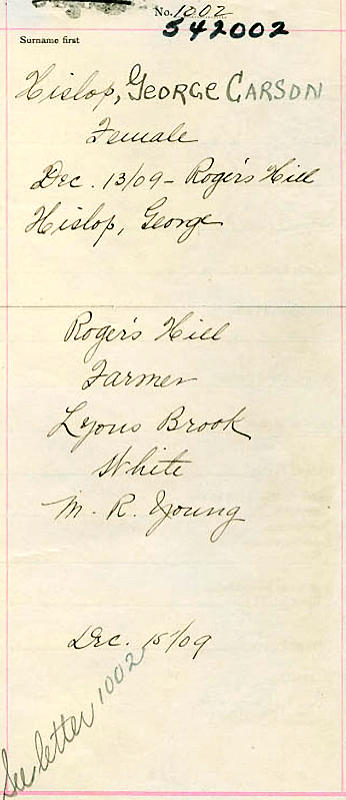 No. 1002
542002
Surname first
Hislop, GEORGE CARSON
Female
Dec. 13/09 - Roger's Hill
Hislop, George
Roger's Hill
Farmer
Lyons Brook
White
M. R. Young
Dec. 15/09
See letter 1002